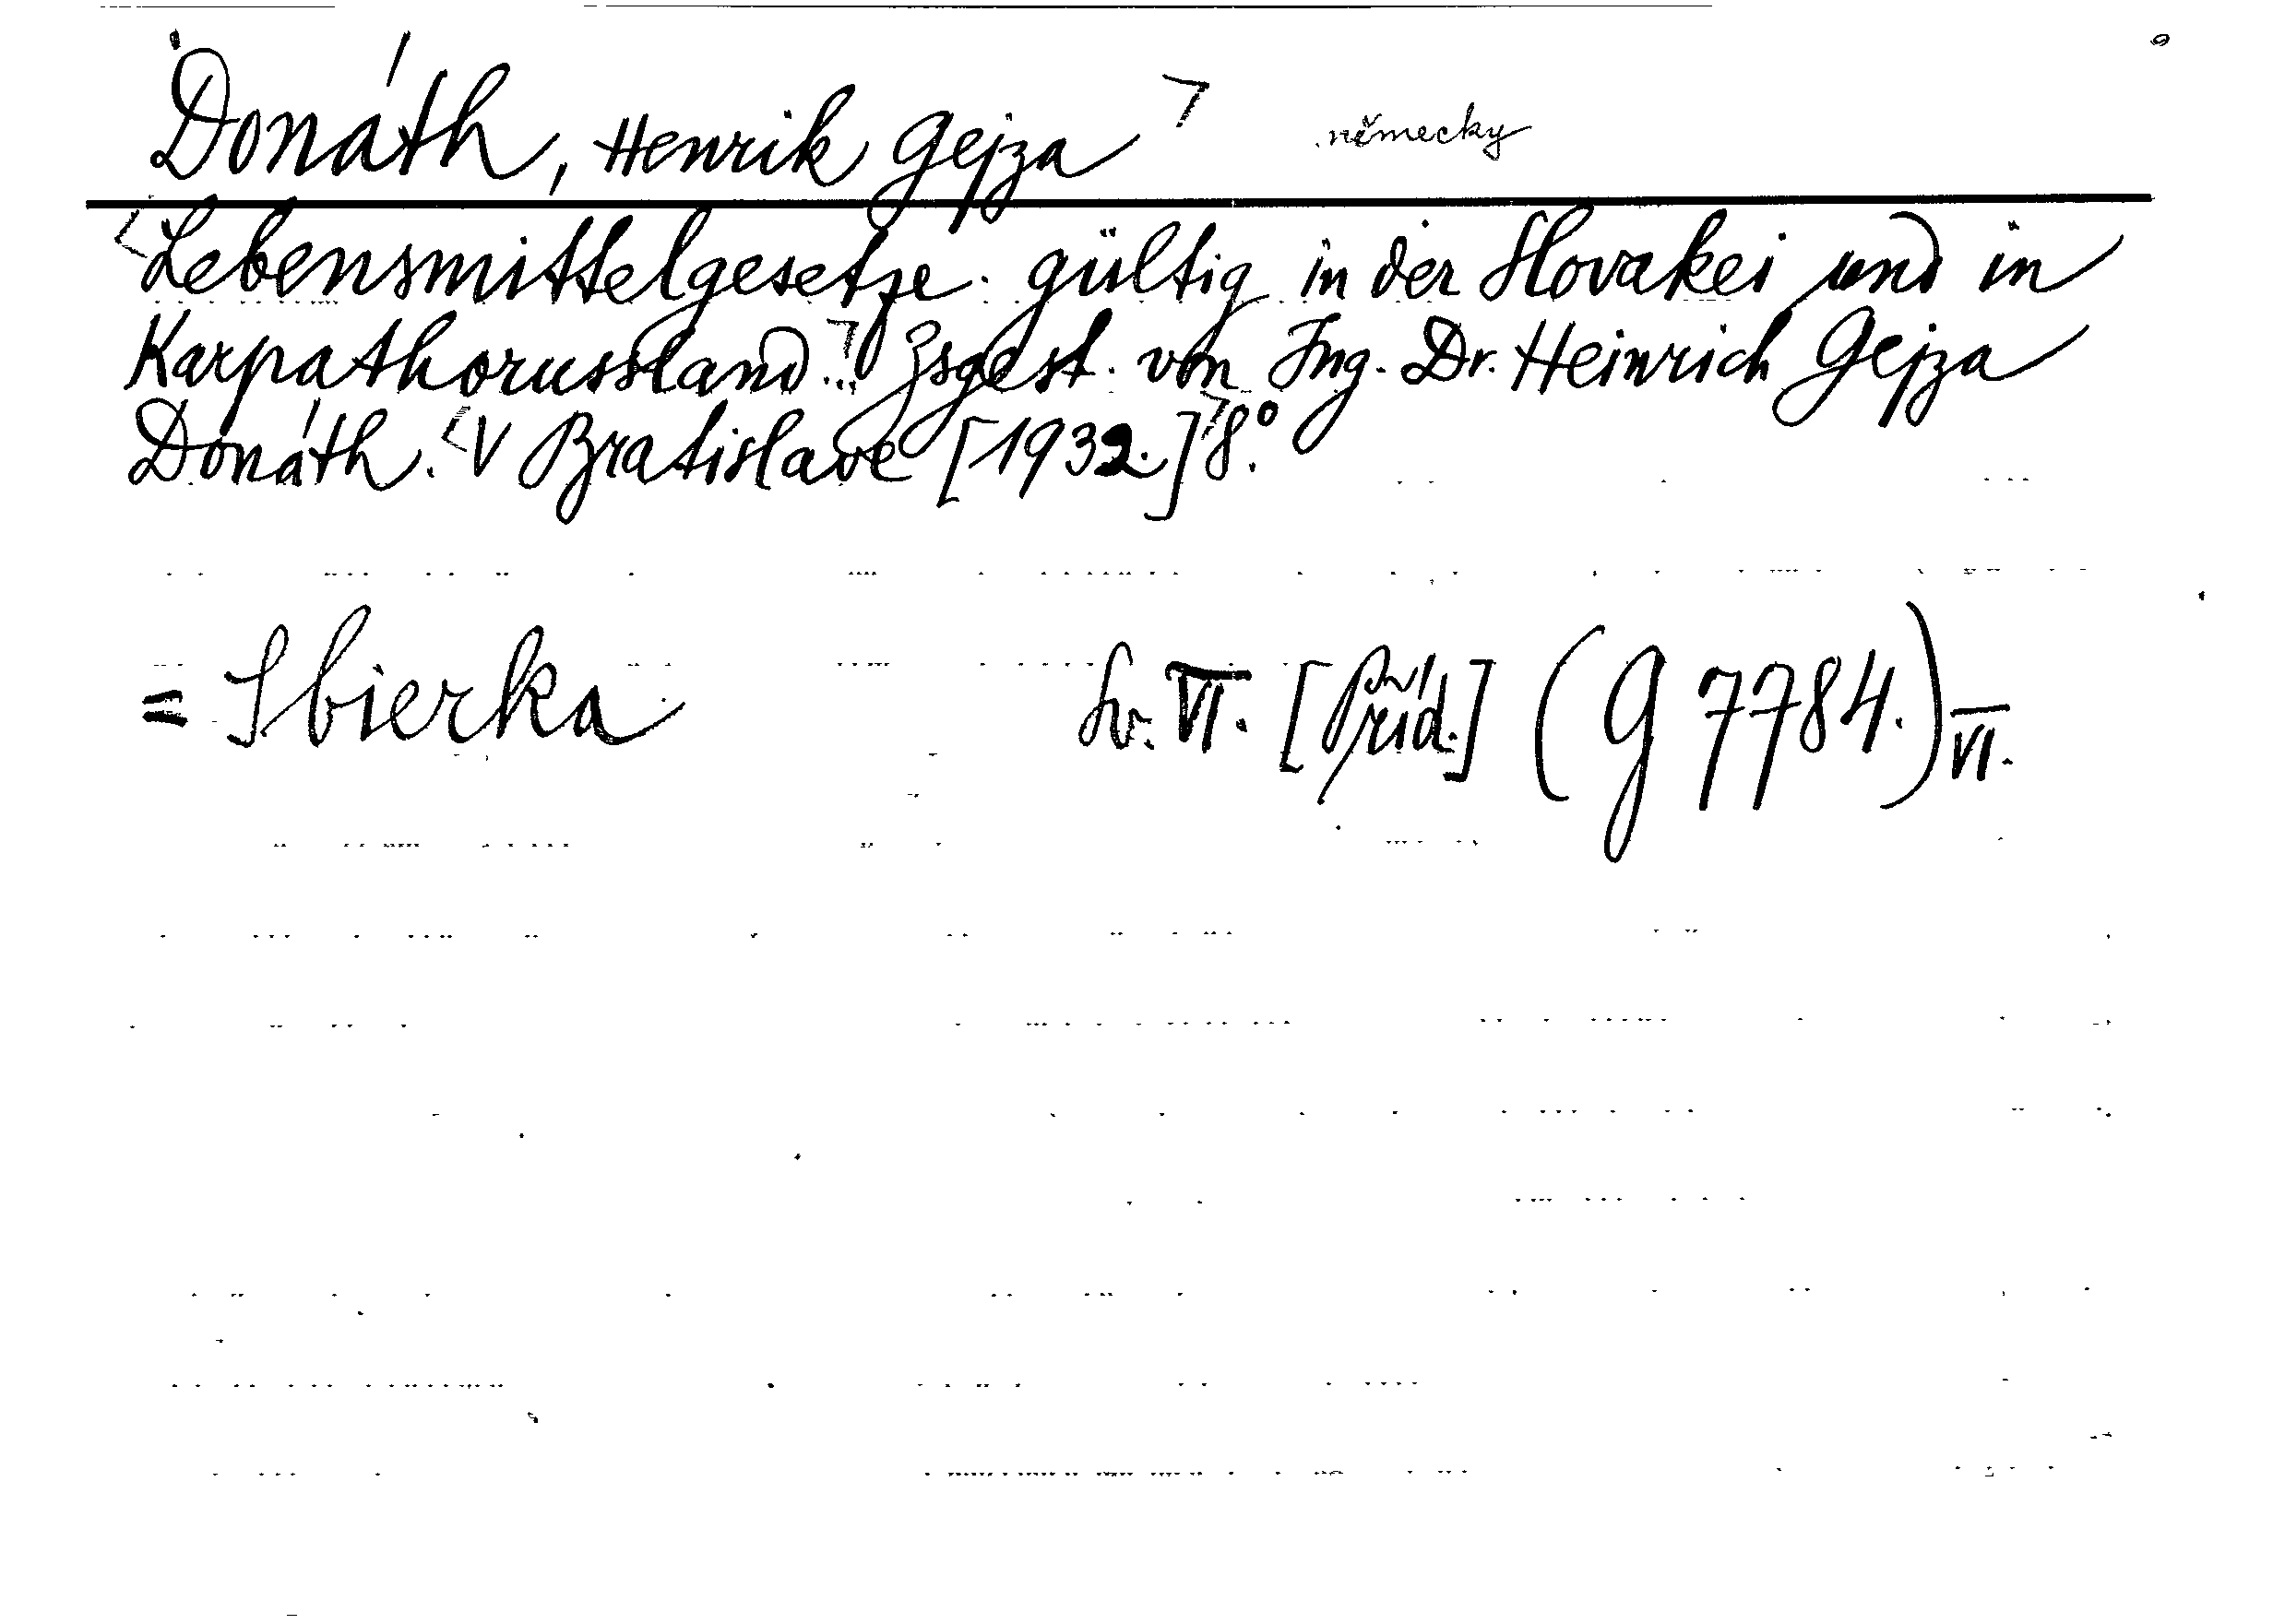 Donáth, Henrik Gejza německy
Lebensmittelgesetze gültig in der Slovakei und in
Karpathorussland... Zsgest. von Ing. Dr. Heinrich Gejza
Donáth. V Bratislave [1932.] 8.°
= Sbierka Sv. VI. [Príd.] (G 7784.) VI.